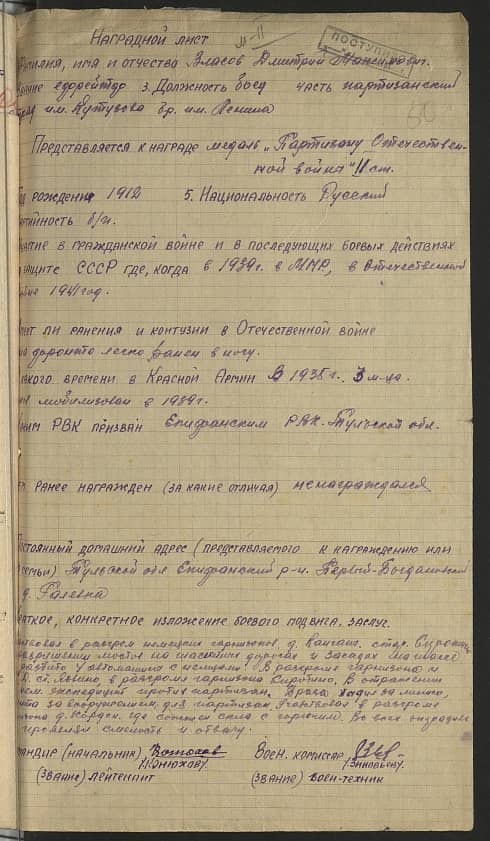 Наградной лист
М-II
ПОСТУПИЛ
60
милия, имя и отчество Власов Дмитрий Максимович.
ание ефрейтор 3. Должность боец часть партизанский
ряд им. Кутузова бр. им. Ленина
Представляется к награде медаль „Партизану Отечествен-
ной войны" II ст.
од рождения 1912 5. Национальность Русский
артийность б/п.
астие в гражданской войне и в последующих боевых действиях
защите СССР где, когда в 1939г. в МНР, в Отечественной
1941 год.
меет ли ранения и контузии в Отечественной войне
легко ранен в ногу.
акого времени в Красной Армии В 1938г. 3 м-ца
мобилизован в 1939г.
ким РВК призван Епифанским РВК. Тульской обл.
ем ранее награжден (за какие отличия) не награждался
остоянный домашний адрес (представляемого к награждению или
семьи) Тульской обл Епифанский р-н. Первый-Богдановский
д. Галевка
раткое, конкретное изложение боевого подвига, заслуг.
в разгром немецких гарнизонов д. стар.
мостов на шоссейных дорогах и засадах на шоссе
разбито 4 автомашины с немцами. В разгроме гарнизона н
ст. в разгроме гарнизона Сиротино, В отражении
нем. экспедиций против партизан. Врага
за вооружением для партизан Участвовал в разгроме
зона д. где сожжен склад с горючим. Во всех операциях
проявлял смелость и отвагу.
мандир (начальник) Конюхов Воен. комиссар
/Конюхов/ /Зиновьев/
(звание) лейтенант (звание) воен-техник